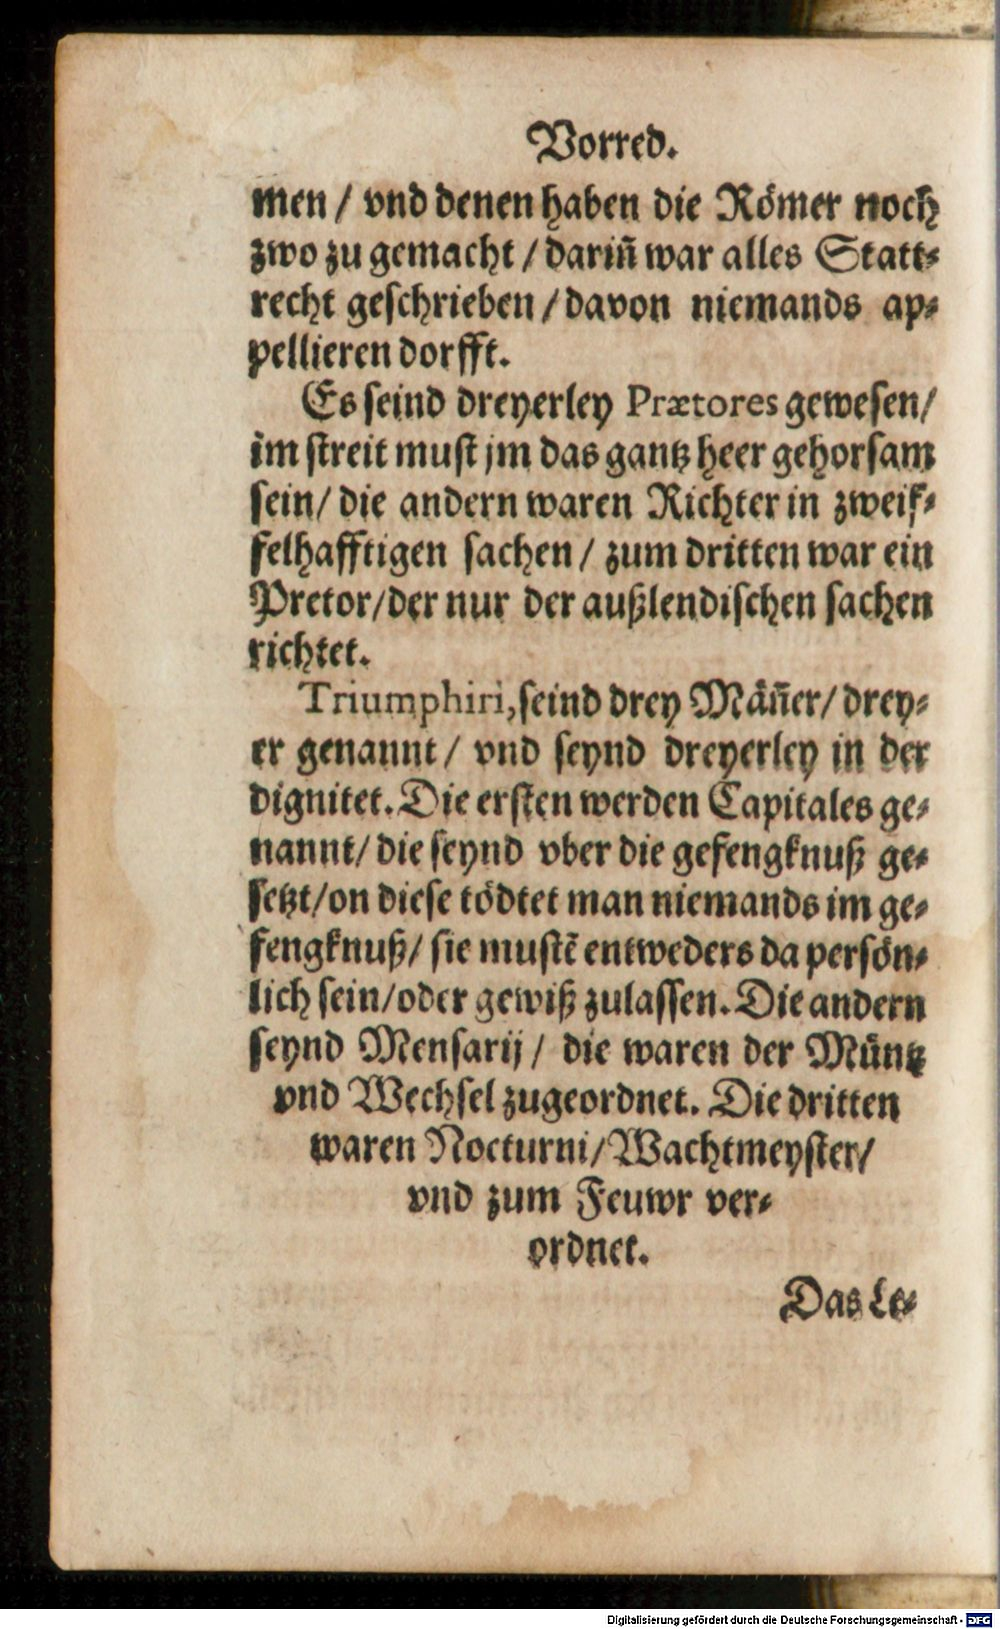 Vorred.
men / vnd denen haben die Römer noch
zwo zu gemacht / dariñ war alles Statt⸗
recht geschrieben / davon niemands ap⸗
pellieren dorfft.
Es seind dreyerley Prætores gewesen /
im streit must jm das gantz heer gehorsam
sein / die andern waren Richter in zweif⸗
felhafftigen sachen / zum dritten war ein
Pretor / der nur der außlendischen sachen
richtet.
Triumphiri, seind drey Mäñer / drey⸗
er genannt / vnd seynd dreyerley in der
dignitet. Die ersten werden Capitales ge⸗
nannt / die seynd vber die gefengknuß ge⸗
setzt / on diese tödtet man niemands im ge⸗
fengknuß / sie mustẽ entweders da persön⸗
lich sein / oder gewiß zulassen. Die andern
seynd Mensarij / die waren der Müntz
vnd Wechsel zugeordnet. Die dritten
waren Nocturni / Wachtmeyster /
vnd zum Feuwr ver⸗
ordnet.
Das Le⸗
Digitalisierung gefördert durch die Deutsche Forschungsgemeinschaft - DFG